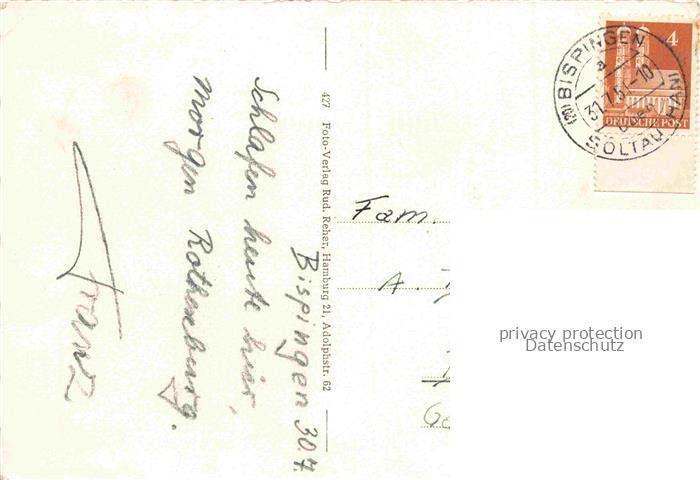 Bispingen 30.7.
Schlafen heute hier,
morgen Rothenburg.
Franz
427 Foto-Verlag Rud. Reher, Hamburg 21, Adolphstr. 62
Fam.
A.
(20) BISPINGEN
a
31.7.51-10
SOLTAU HAN
4
DEUTSCHE POST
privacy protection
Datenschutz